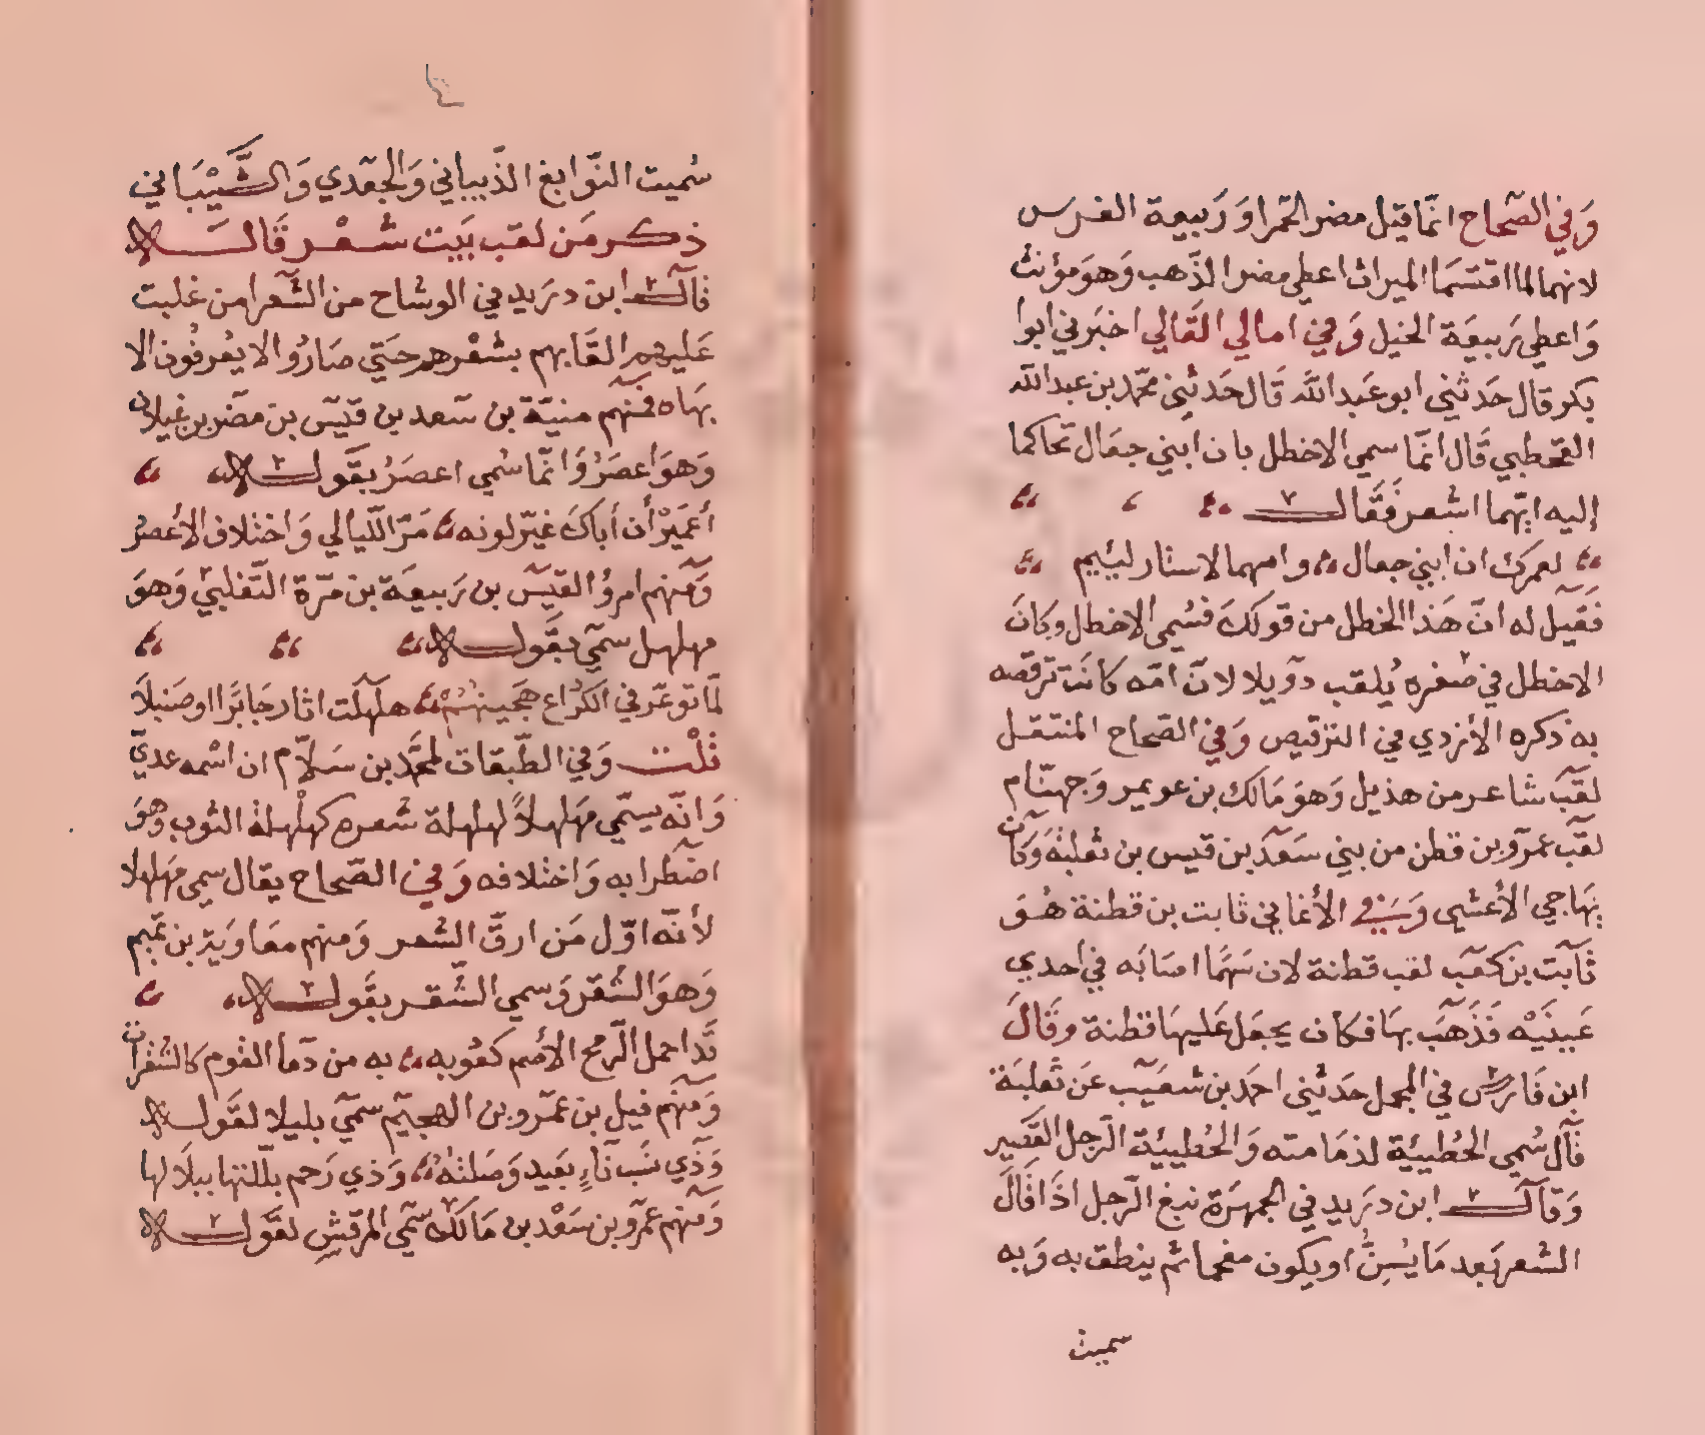 وَفي الصّحاح انّما قيل مضر الحمرا وَرَبيعة الفرس
لانهما لما اقتسَما الميراث اعطي مضر الذّهب وَهوَ مؤنث
وَاعطي رَبيعَة الخيل وَفي امالي القَالي اخبَرني ابوا
بكر قال حَدثني ابو عَبد اللَّه قَال حَدثني محمّد بن عبد الله
القحطبي قَال انّما سمي الاخطل بان ابني جعَال تحاكما
إليه ايّهما اشعر فَقَال
لعمرك ان ابني جعال وامهما لاستار لئيم
فَقيل له انّ هَذا الخطل من قولكَ فسُمي الاخطل وكَانَ
الاخطل في صغره يُلقب دوبلا لانّ امّه كانَت ترقصه
به ذكره الأزدي في الترقيص وَفي الصحاح المنتقل
لقَب شاعر من هذيل وَهوَ مَالك بن عويمر وَجهنّام
لقَب عمرو بن قطن من بني سَعد بن قيس بن ثعلبَة وَكَان
يهَاجي الأعشى وَفي الأغاني ثابت بن قطنة هُوَ
ثَابت بن كعَب لقب قطنة لان سَهمًا اصَابَه في احدي
عَينَيْه فَذَهَب بهَا فكان يجعَل عَليهَا قطنة وقَالَ
ابن فَارس في المجمل حدثني احمَد بن شعَيب عَن ثعلبَة
قَال سُمي الحُطيئة لدمَامته وَالحُطيئة الرّجل القَصير
وَقال ابن دريد في الجمهَرَة نبغ الرّجل اذَا قَالَ
الشعر بَعد مَا يُسِنُّ او يكون مفحما ثم ينطق به وَبه
سميت
سُميت النّوابغ الذّبياني وَالجعّدي وَالشَّيْبَاني
ذكر مَن لقب ببَيت شعْر قَالَه
قال ابن دريد في الوشاح من الشعَرا من غلبت
عَليهم القَابهم بشعْرهم حَتي صَارُوا لا يعْرفُون الا
بهَا فمنهم منبّة بن سَعد بن قيَس بن مضَر بن غيلان
وَهوَ اعصَرُ وَانّما سُمي اعصَرُ بقَوله
أعمَيْر أن أباكَ غيّر لونه مَرّ اللّيالي وَاختلاف الأعصر
وَمنهم امرؤ القيَس بن رَبيعَة بن مّرة التّغلبيّ وَهوَ
مهلهل سمّي بقَوله
لمّا توعّر في الكُرَاع هجينهُمْ هلَهَلت اثار جَابرًا او صَنبلاَ
قلْت وَفي الطّبقات لمحمَّد بن سَلاّم ان اسْمه عديّ
وَانّه يسمّي مهَلهلاً لهلهلة شعره كهلْهلة الثوب وهوَ
اضطرابه وَاختلافه وَفي الصّحاح يقال سمي مهَلهلا
لأنّه اوّل مَن ارقَّ الشعر وَمنهم معَاويَة بن تميم
وَهوَ الشقر وَسمي الشّقر بقَوله
قَد احمل الرّمح الأصم كعُوبه به من دمَا القوم كالشقرات
وَمنهم فيل بن عمرو بن الهجيَم سمّي بليلا لقَوله
وَذي نسَب نَاءٍ بعَيد وَصَلتهُ وَذي رَحم بلّلتها ببلَالها
وَمنهم عمرو بن سَعْد بن مَالك سمّي المرقشِ لقَوله